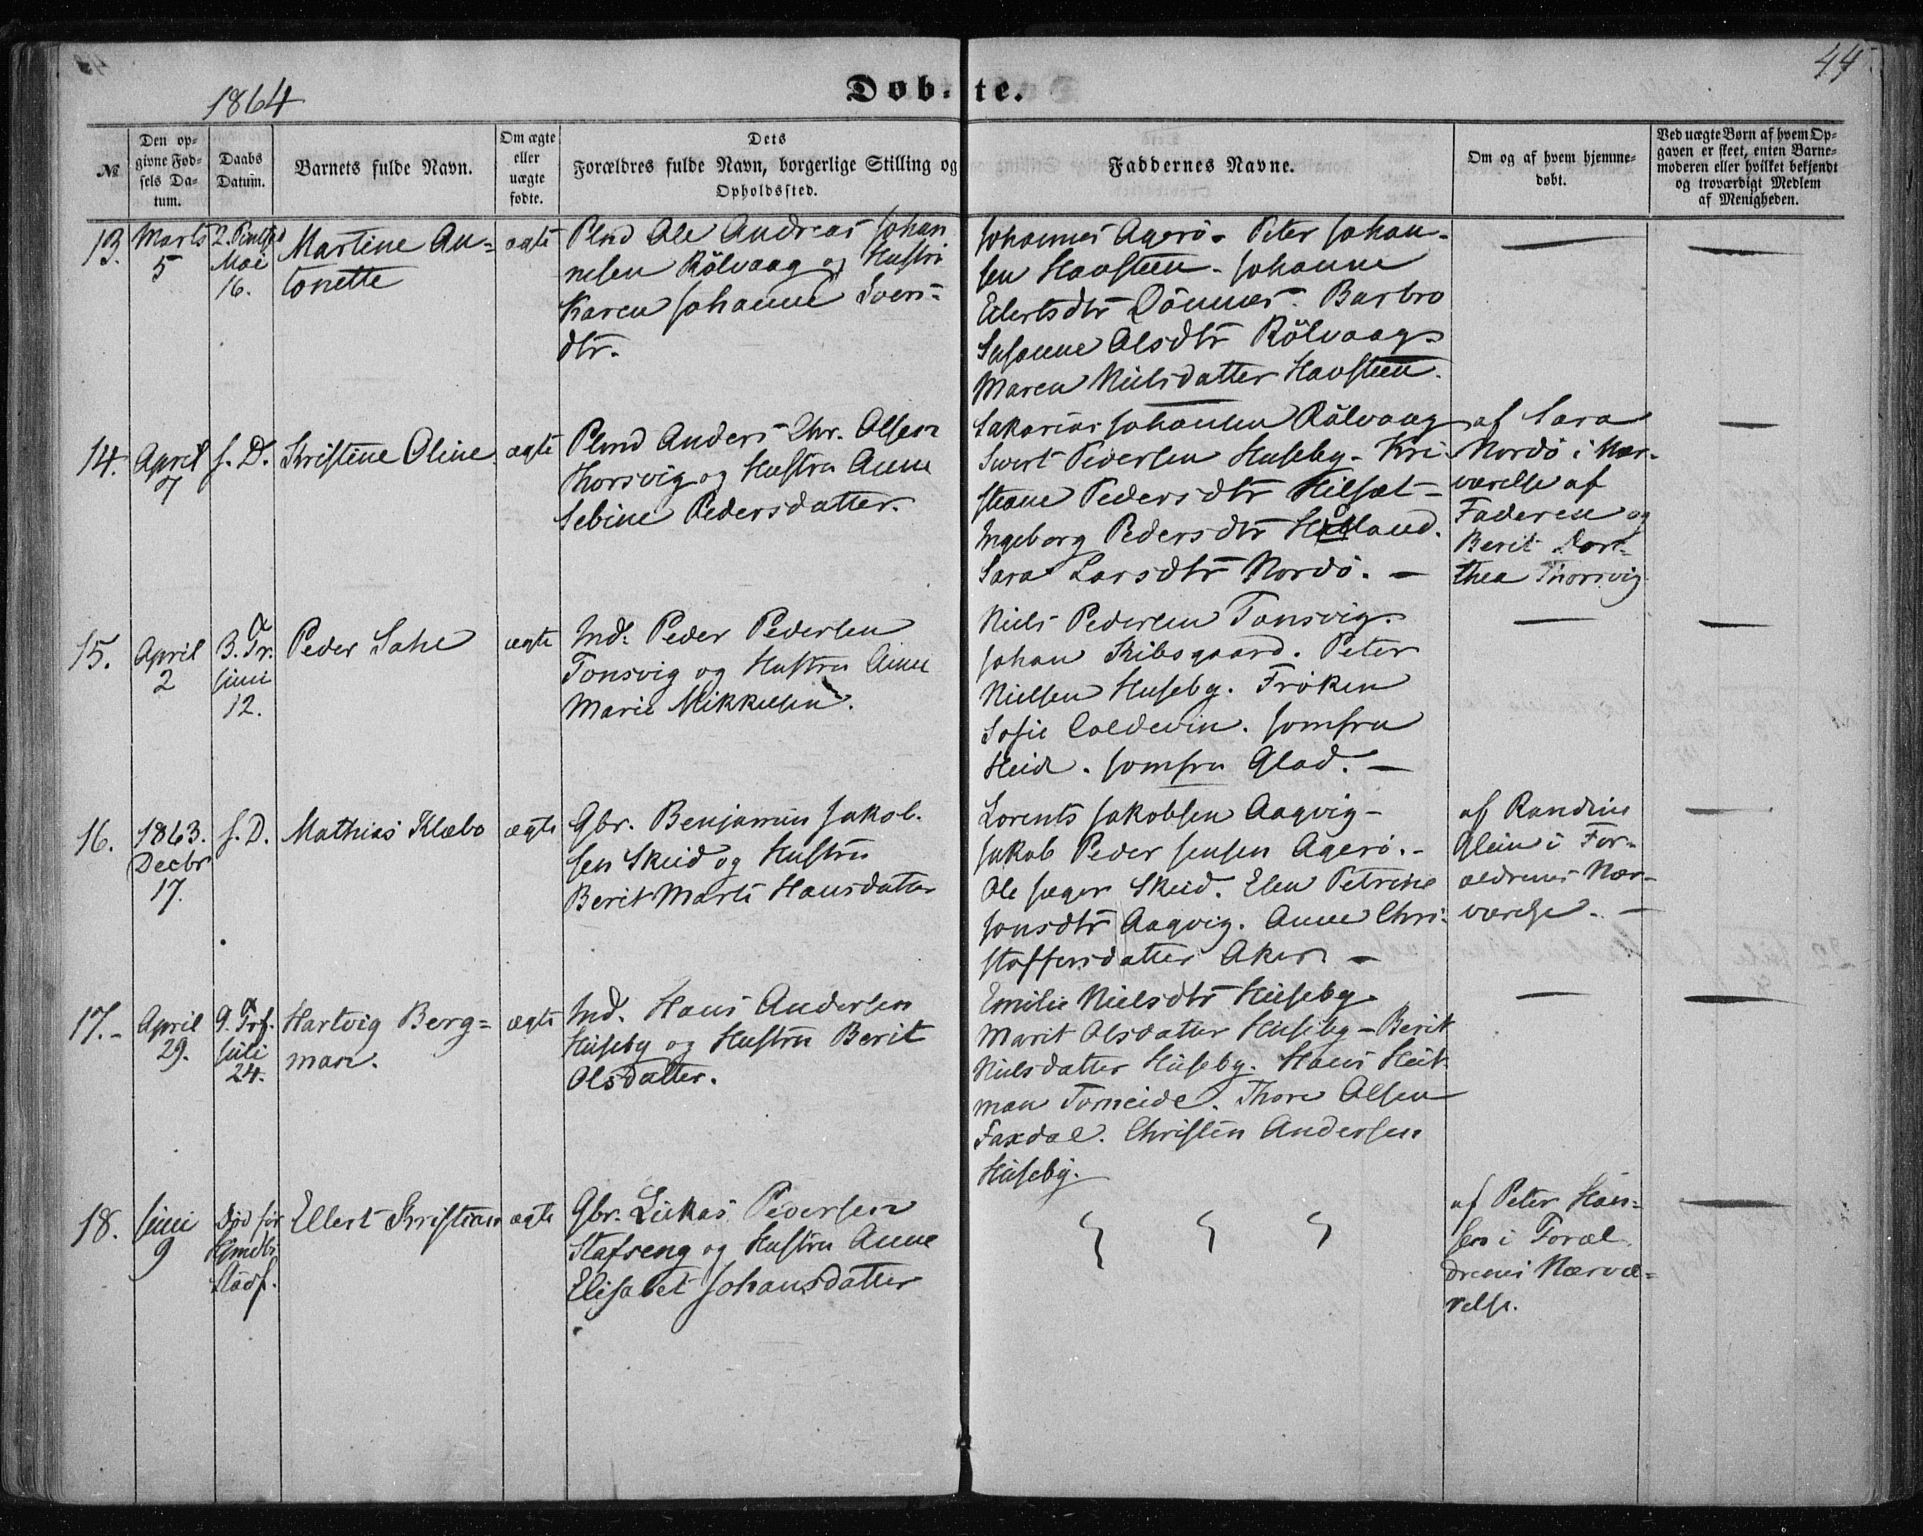 44.
1864
Døbte.
№
Den op-
givne Fød-
sels Da-
tum.
Daabs
Datum.
Barnets fulde Navn.
Om ægte
eller
uægte
fødte.
Dets
Forældres fulde Navn, borgerlige Stilling og
Opholdssted.
Faddernes Navne.
Om og af hvem hjemme-
døbt.
Ved uægte Børn af hvem Op-
gaven er skeet, enten Barne-
moderen eller hvilket bekjendt
og troværdigt Medlem
af Menigheden.
13.
Marts
5
2. Pintsed
Mai
16.
Martine An-
tonette
ægte
Plmd Ole Andreas Johan
nesen Rölvaag og Hustru
Karen Johanne Svens-
dtr.
Johannes Agerö. Peter Johan-
sen Havsteen. Johanne
Edertsdtr Dönnes. Barbro
Susanne Olsdtr Rölvaag.
Maren Nielsdatter Havsteen.
14.
April
7
s. D.
Kristine Oline
ægte
Plmd Anders Chr. Olsen
Thorsvig og Hustru Anne
Sebine Pedersdatter.
Sakarias Johansen Rölvaag
Sivert Pedersen Huseby. Kri
stiane Pedersdtr Hilsæt-
Ingeborg Pedersdtr
Sara Larsdtr Nordö.
af Sara
Nordö i Nær-
værelse af
Faderen og
Berit Doro-
thea Thorsvig
15.
April
2
3. S. a Tr.
Juni
12.
Peder Sahl
ægte
Ind. Peder Pedersen
Tonsvig og Hustru Anne
Marie Mikkelsen.
Niels Pedersen Tonsvig.
Johan Kibsgaard. Peter
Nielsen Huseby. Frøken
Sofie Coldevin. Jomfru
Heide. Jomfru Glad.
16.
1863.
Decbr
17.
s. D.
Mathias Klæbo
ægte
Gbr. Benjamin Jakob-
sen Skeid og Hustru
Berit Marte Hansdatter
Lorents Jakobsen Aagvig-
Jakob Peder Jensen Agerö.-
Ole Jæger Skeid. Elen Petrine
Jonsdtr Aagvig. Anne Chri-
stoffersdatter Aker.
af Randine
Glein i For-
ældrenes Nær-
værelse.
17.-
April
29.
9. Trf.
Juli
24.
Hartvig Berg-
man.
ægte
Ind. Hans Andersen
Huseby og Hustru Berit
Olsdatter.
Emilie Nielsdtr Huseby
Marit Olsdatter Huseby - Berit
Nielsdatter Huseby. Hans Heit-
man Torneide. Thore Olsen
Faxdal. Christen Andersen
Huseby.
18.
Juni
9
Död før
Hjmdbs
Stadf.
Ellert Kristian
ægte
Gbr. Lukas Pedersen
Stafseng og Hustru Anne
Elisabet Johansdatter
af Peter Han-
sen i Foræl
drenes Nærvæ-
relse.